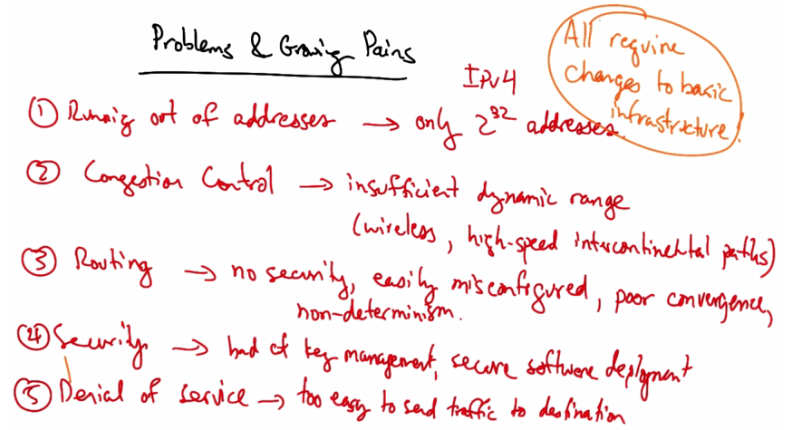 Problems & Growing Pains
All require
changes to basic
infrastructure!
IPv4
① Running out of addresses → only 2^32 addresses.
② Congestion Control → insufficient dynamic range
(wireless, high-speed intercontinental paths)
③ Routing → no security, easily misconfigured, poor convergence,
non-determinism.
④ Security → bad at key management, secure software deployment
⑤ Denial of service → too easy to send traffic to destination